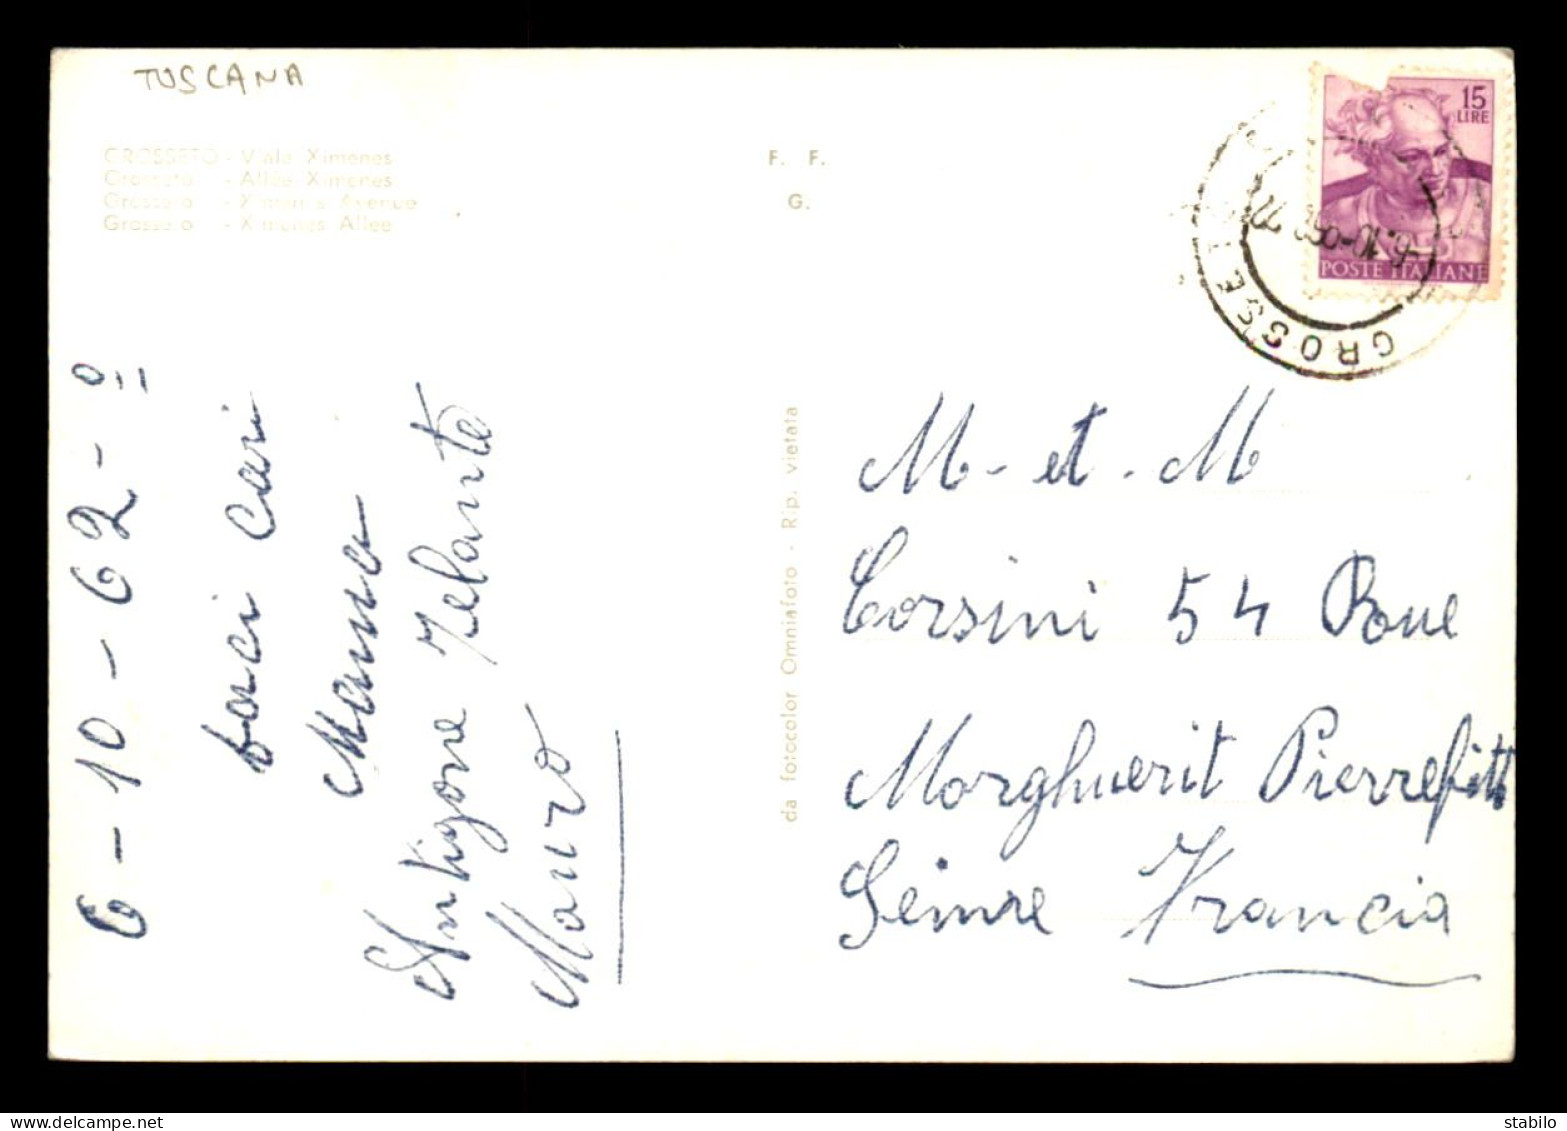 TUSCANA
GROSSETO - Viale Ximenes
Grosseto - Allée Ximenes
Grosseto - Ximenes Avenue
Grosseto - Ximenes Allee
F. F.
G.
15
LIRE
POSTE ITALIANE
GROSSETO
6-10-62-
baci cari
Mamma
Antigone Jelante
Mauro
da fotocolor Omniafoto - Rip. vietata
M-et-M
Corsini 54 Roue
Morghuerit Pierrefitt
Seinre Francia
delcampe.net
stbilo